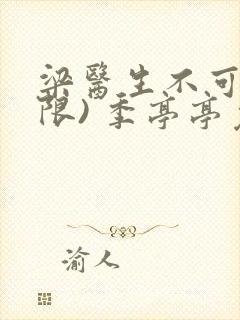 梁醫生不可
限)季亭亭
渝人